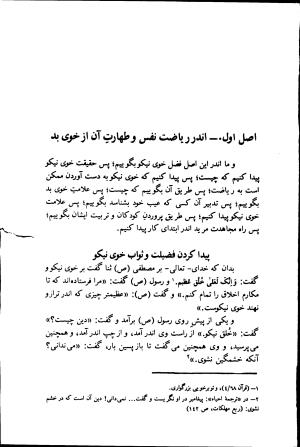 اصل اول. ــ اندر ریاضت نفس و طهارتِ آن از خوی بد
و ما اندر این اصل فضل خوی نیکو بگوییم؛ پس حقیقت خوی نیکو
پیدا کنیم که چیست؛ پس پیدا کنیم که خوی نیکو به دست آوردن ممکن
است به ریاضت؛ پس طریق آن بگوییم که چیست؛ پس علامتِ خوی بد
بگوییم؛ پس تدبیر آن کسی که عیب خود بشناسد بگوییم؛ پس علامت
خوی نیکو پیدا کنیم؛ پس طریق پروردنِ کودکان و تربیت ایشان بگوییم؛
پس راه مجاهدت مرید اندر ابتدای کار پیدا کنیم.
پیدا کردن فضیلت و ثواب خوی نیکو
بدان که خدای- تعالی- بر مصطفی (ص) ثنا گفت بر خوی نیکو و
گفت: وَ اِنَّکَ لَعَلٰی خُلُقٍ عَظیم.۱ و رسول (ص) گفت: «مرا فرستاده‌اند که تا
مکارم اخلاق را تمام کنم.» و گفت (ص): «عظیمترِ چیزی که اندر ترازو
نهند خوی نیکوست.»
و یکی از پیش روی رسول (ص) برآمد و گفت: «دین چیست؟»
گفت: «خُلق نیکو.» از راست وی اندر آمد، و از چپ اندر آمد، و همچنین
می‌پرسید، و وی همچنین می‌گفت تا بازپسین بار، گفت: «می‌ندانی؟
آنکه خشمگین نشوی.»۲
۱ـ (قرآن، ۴/۶۸)، و تو بر خویی بزرگواری.
۲ـ در «ترجمهٔ احیاء»: پیغامبر در او نگریست و گفت... نمی‌دانی؟ دین آن است که در خشم
نشوی. (ربع مهلکات، ص ۱۴۲)